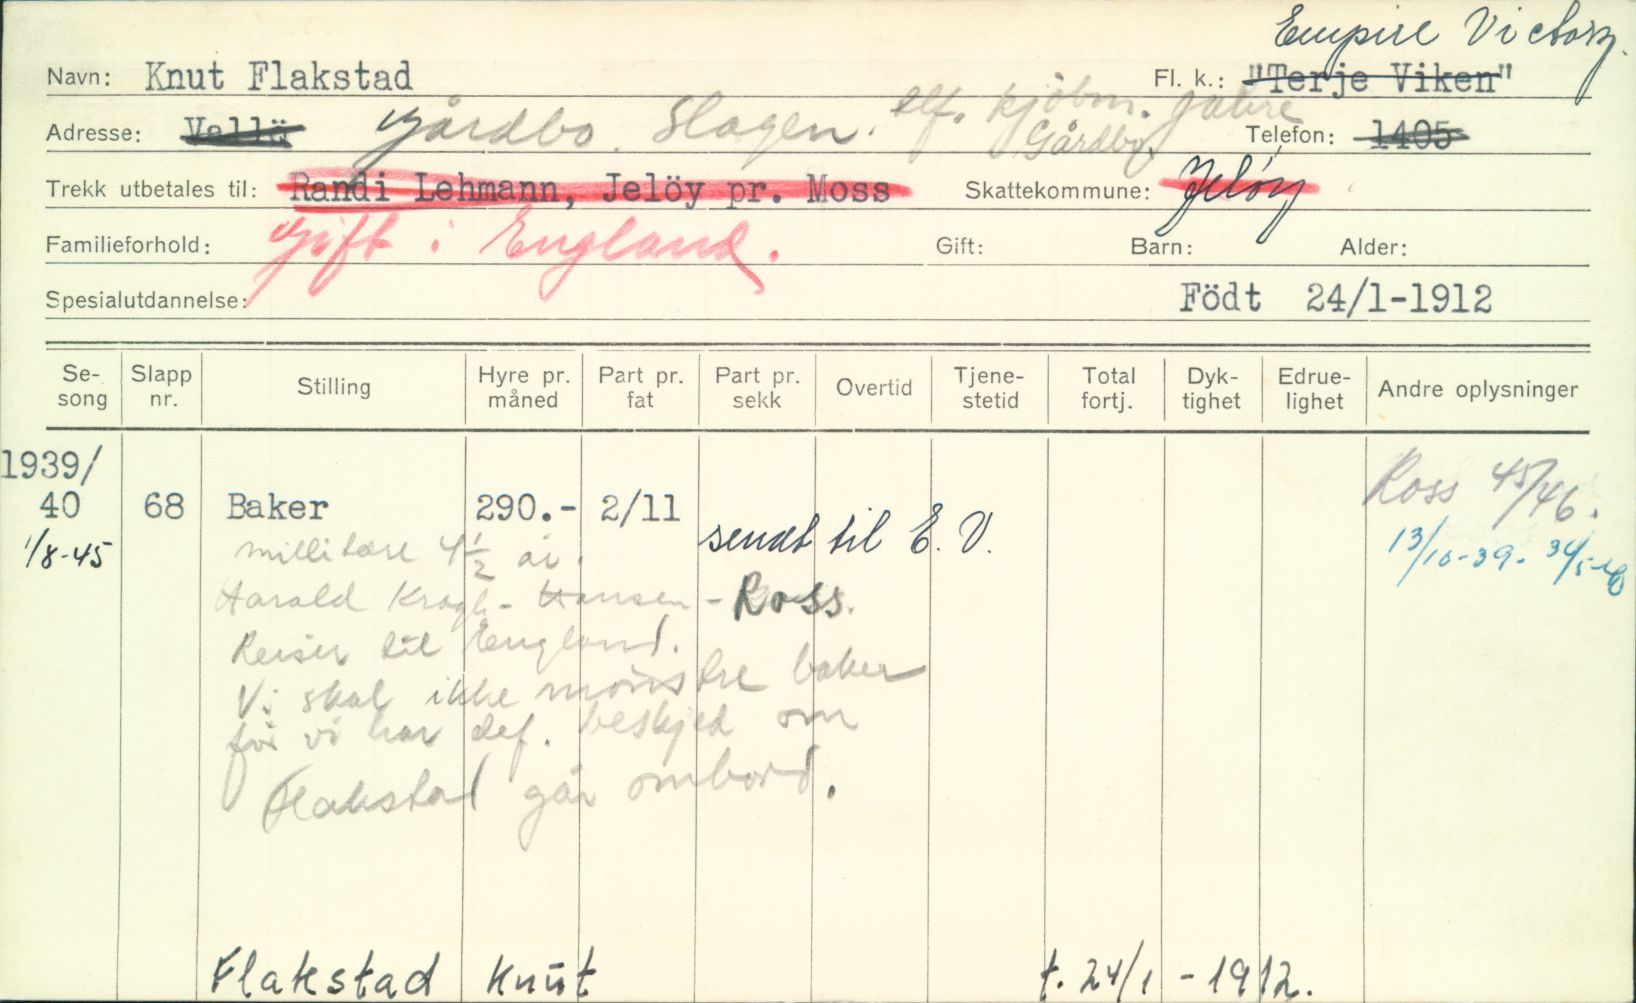 Empire Victory.
Navn: Knut Flakstad Fl. k.: "Terje Viken"
Adresse: Vallö Gårdbo. Slagen. tlf. kjöbm. Jahre Gårdbo. Telefon: 1405
Trekk utbetales til: Randi Lehmann, Jelöy pr. Moss Skattekommune: Jelöy
Familieforhold: Gift i England. Gift: Barn: Alder:
Spesialutdannelse: Födt 24/1-1912
Se-song Slapp nr. Stilling Hyre pr. måned Part pr. fat Part pr. sekk Overtid Tjene-stetid Total fortj. Dyk-tighet Edrue-lighet Andre oplysninger
1939/
40 68 Baker 290.- 2/11 Ross 45/46.
sendt til E. V.
1/8-45 millitære 4½ år. 13/10-39-
Harald Krogh-Hansen - Ross.
Reiser til England.
Vi skal ikke mönstre baker
för vi har def. beskjed om
Flakstad går ombord.
Flakstad Knut f. 24/1 - 1912.